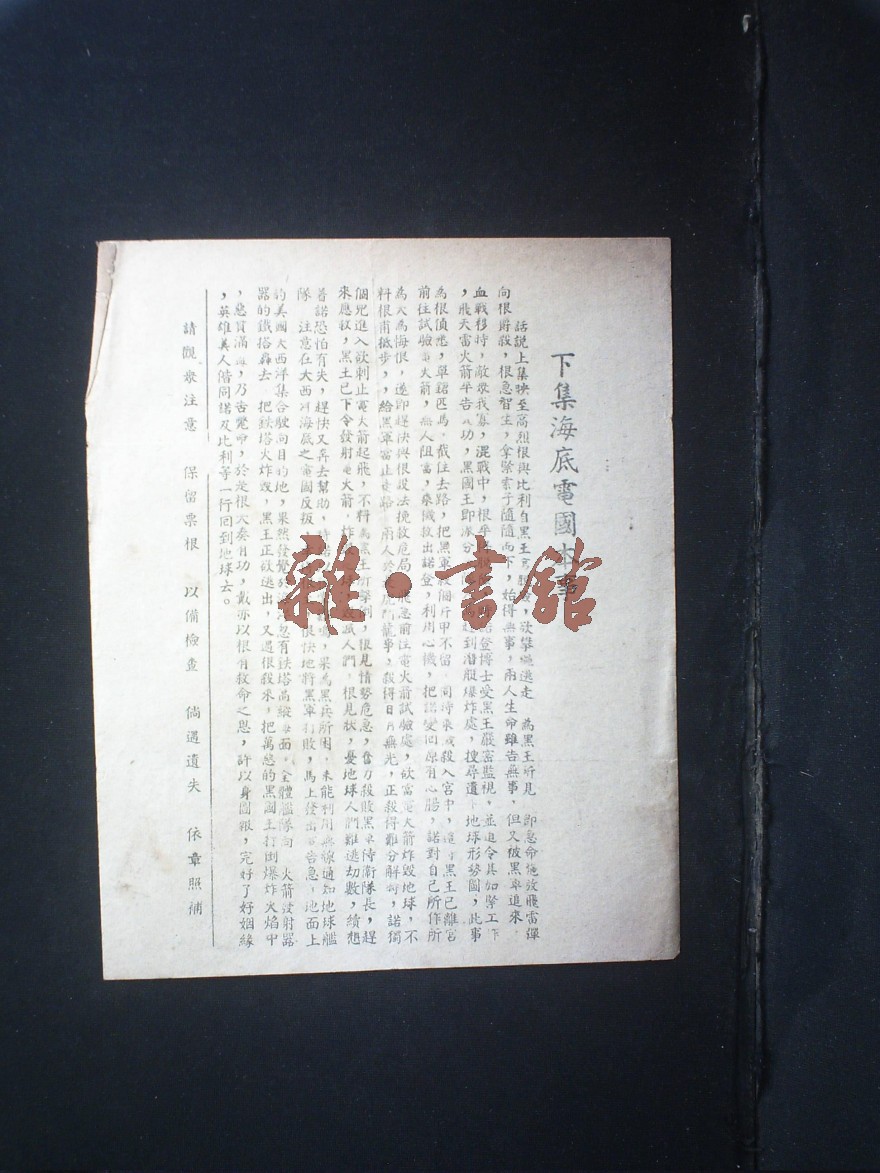 下集海底電國本事
話說上集映至高烈根與比利自黑王宮 欲攀 逃走 為黑王所見 即急命施放飛雷彈
向根爵殺，根急智生，拿緊索子隨隨而下，始得無事，兩人生命雖告無事，但又被黑軍追來，
血戰移時，敵眾我寡，混戰中，根 諾登博士受黑王嚴密監視，並迫令其加緊工作
，飛天雷火箭半告 功，黑國王即派分 到潛艇爆炸處，搜尋遺 地球形勢圖，此事
為根偵悉，單鎗匹馬，截住去路，把黑軍殺個片甲不留 同時乘 殺入宮中， 黑王已離宮
前往試驗電火箭，無人阻當，乘機救出諾登，利用心機，把諾變回原有心腸，諾對自己所作所
為大為悔恨，遂即趕快與根設法挽救危局 飛急前往電火箭試驗處，欲當電火箭炸毀地球，不
料根甫抵步，，給黑軍當住去路 兩人 虎門龍爭，殺得日月無光，正殺得難分解時，諾獨
個兒進入欲刺止電火箭起飛，不料為黑王所擊 ，根見情勢危急，奮力殺敗黑軍侍衛隊長，趕
來應救，黑王已下令發射電火箭 炸 人們 根見狀，憂地球人們難逃劫數，續想
普諾恐怕有失，趕快又奔去幫助， 果為黑兵所困 未能利用無線通知地球艦
隊 注意在大西洋海底之電國反扳， 很快地將黑軍打敗，馬上發出 告急，地面上
的美國大西洋集合駛向目的地，果然發覺 忽有鉄塔高縱 面。全體艦隊向 火箭發射器
器的鐵搭轟去 把鉄塔火炸毀，黑王正欲逃出，又遇根殺來，把萬惡的黑國王打倒爆炸火焰中
，惡貫滿 ，乃告覺命，於是根大奏有功，戴亦以根有救命之恩，許以身圖報，完好了好姻緣
，英雄美人偕同諾及比利等一行回到地球去。
請觀眾注意 保留票根 以備檢查 倘遇遺失 依章照補
雜·書館